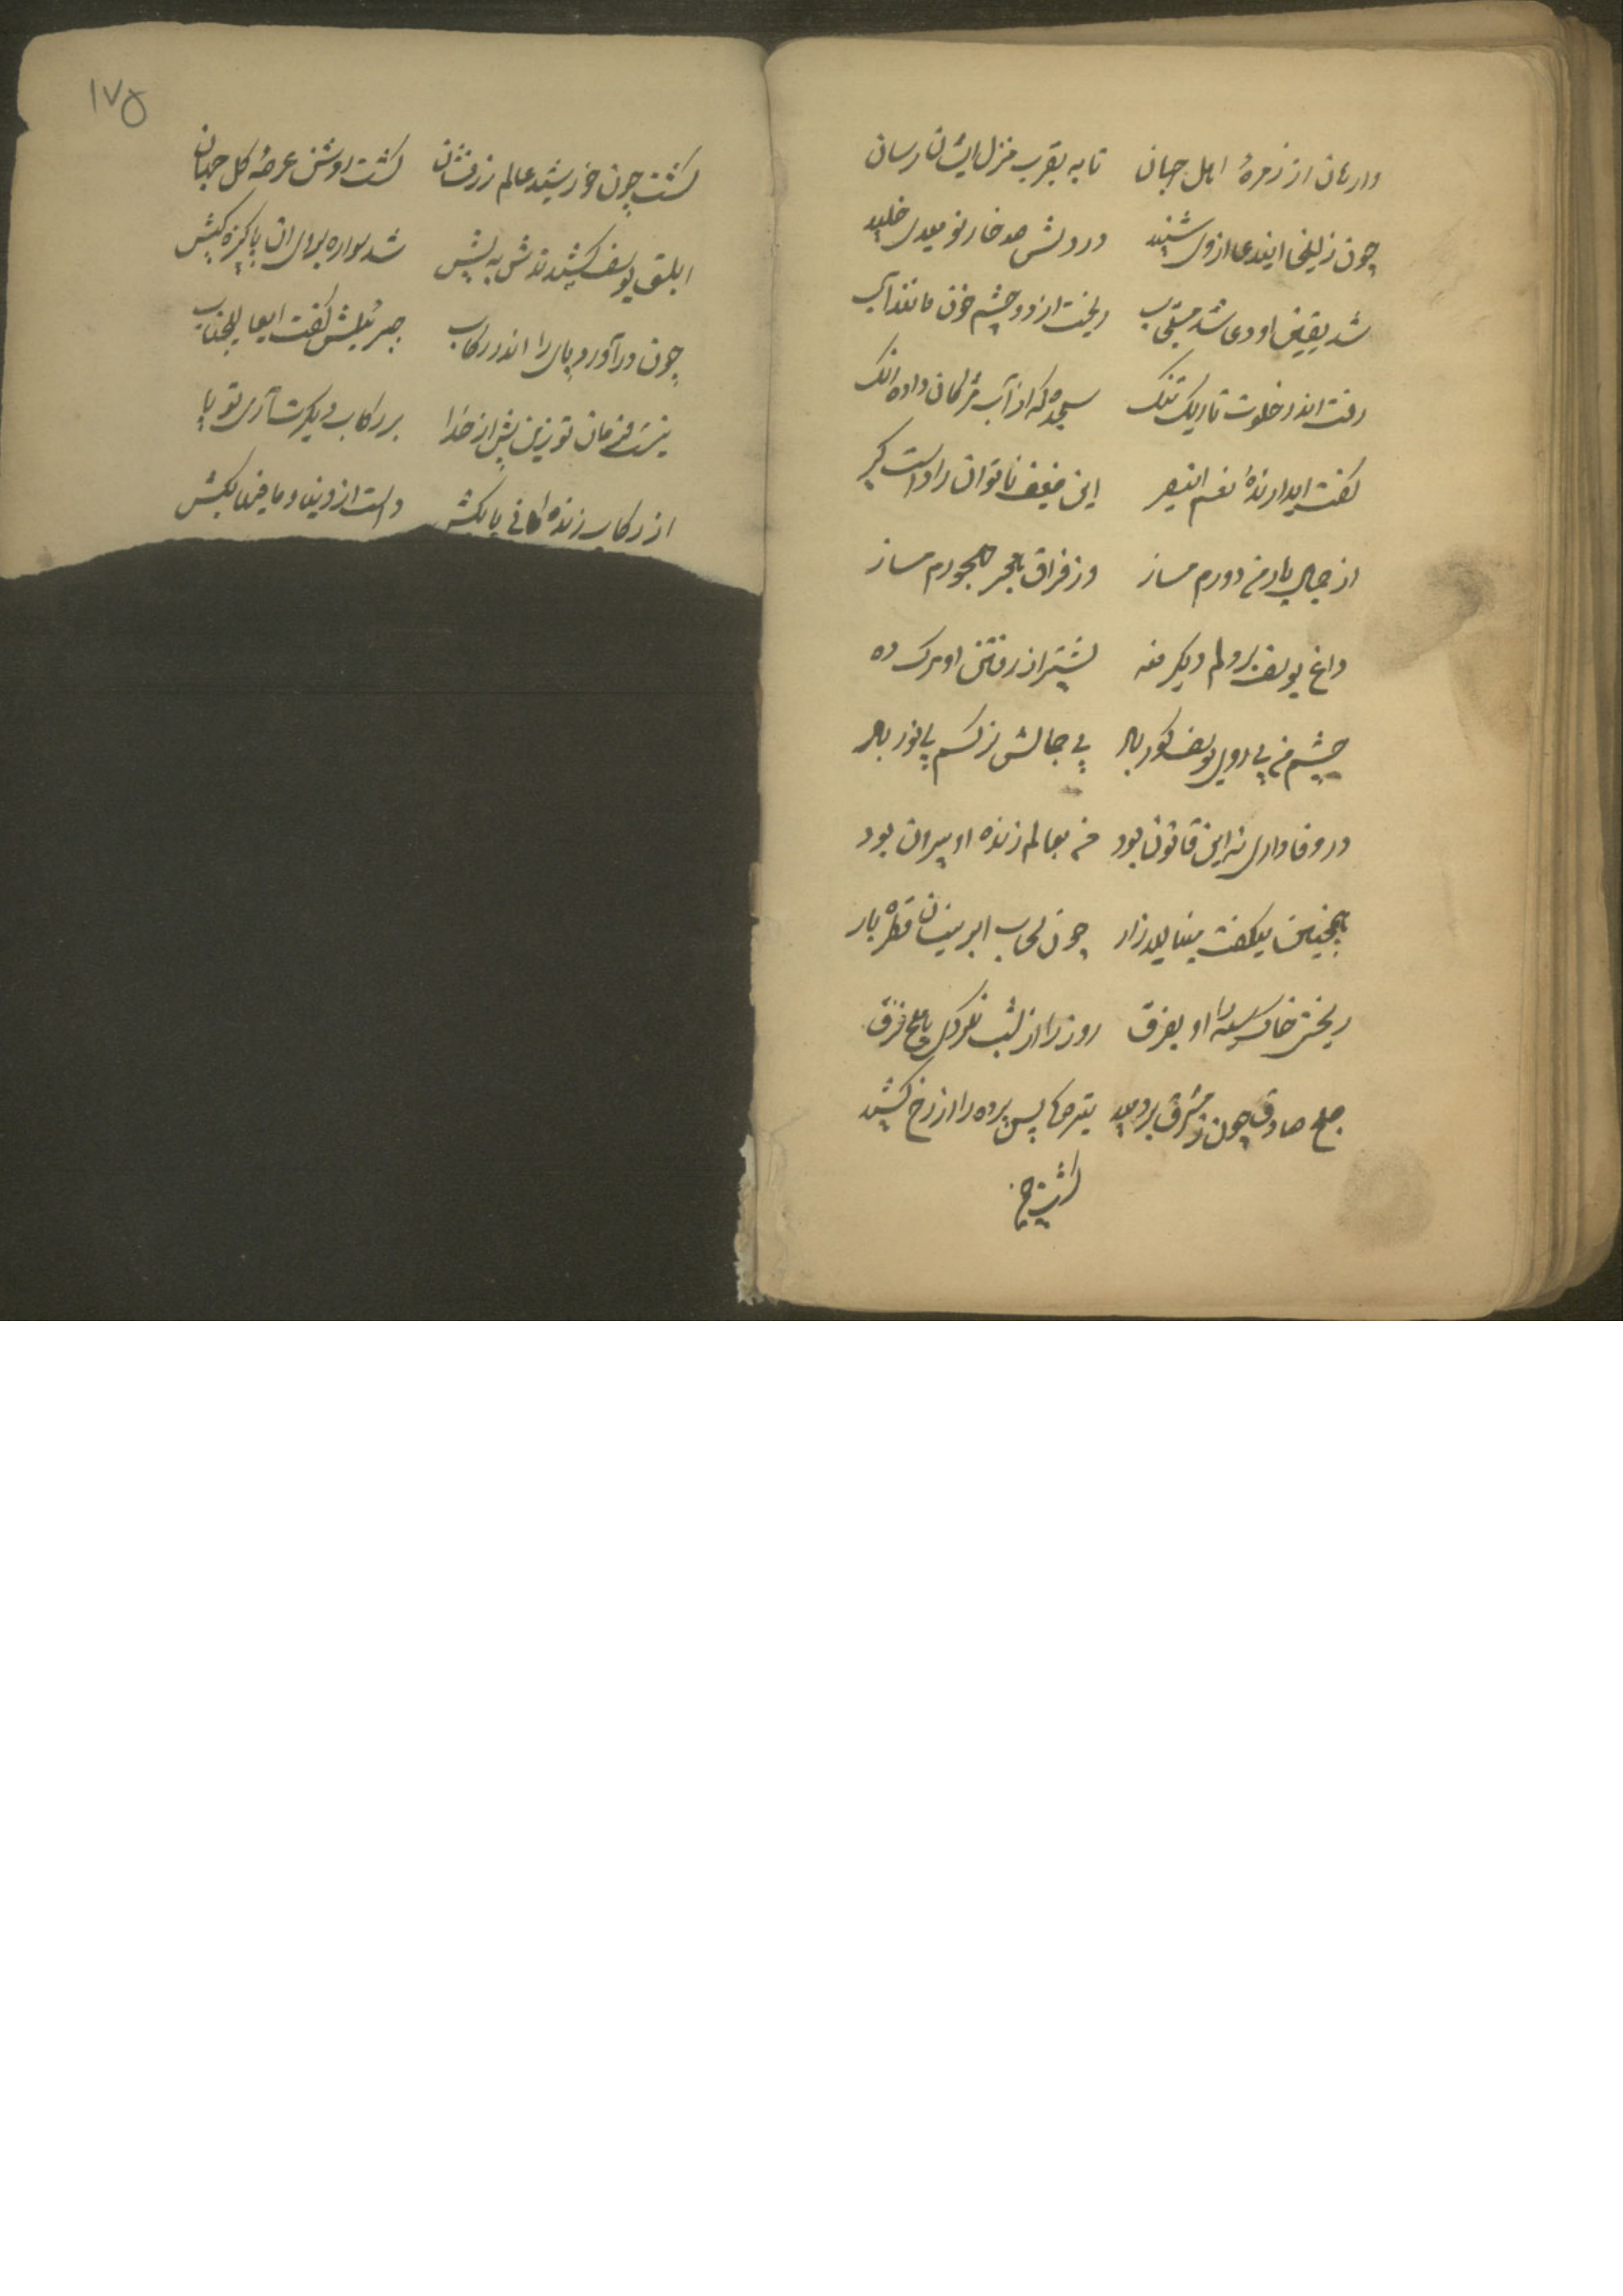 وارهان از زمرهٔ اهل جهان تا به بقرب منزل ایشان رسان
چون زلیخا ایندعا از وی شنید در دلش صد خار نومیدی خلید
شد یقینش او دعا شد مستجاب ریخت از دو چشم خون مانند آب
رفت اندر خلوت تاریک تنک سجده که از آب مژکان داده رنک
کفت ایدارندهٔ نعم النصیر این ضعیف ناتوان را دست کیر
از جمال یار من دورم مساز وز فراق هجر مهجورم مساز
داغ یوسف بر دلم دیکر منه پیشتر از رفتن او مرک ده
چشم من بی روی یوسف کور باد بی جمالش نرکسم بی نور باد
در وفاداری نه این قانون بود من بعالم زنده او بیرون بود
همچنین میکفت مینالید زار چون سحاب ابر نیسان قطره بار
ریختی خاک سیه را او بفرق روز را از شب نکردی هیچ فرق
صبح صادق چون ز مشرق بردمید پس پرده را از رخ کشید
کشت چون
۱۷۵
کشت چون خورشید عالم زرفشان کشت روشن عرصهٔ کل جهان
ابلق یوسف کشیدندش به پیش شد سواره بر وی ان پاکیزه کیش
چون درآورد پای را اندر رکاب جبرئیلش کفت ایعالیجناب
نیست فرمان تو زین پیش از خدا بر رکاب دیکرت آری تو پا
از رکاب زنده کانی پا بکش دست از دنیا و مافیها بکش